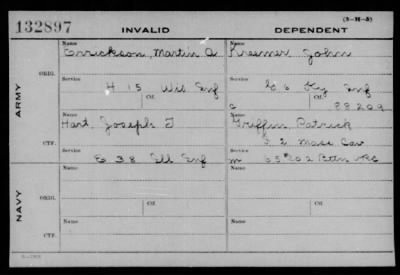 132897 INVALID DEPENDENT (3-M-5)
Name Name
Errickson, Martin A Kreemer John
ORIG.
ARMY
Service Service
H 15 Wis Inf G 6 Ky Inf
Ctf. Ctf.
C 88209
Name Name
Hart Joseph T Griffin Patrick
CTF.
Service Service
E 38 Ill Inf Mass Cav
m 65
Name Name
ORIG.
NAVY
Service Service
Ctf. Ctf.
Name Name
CTF.